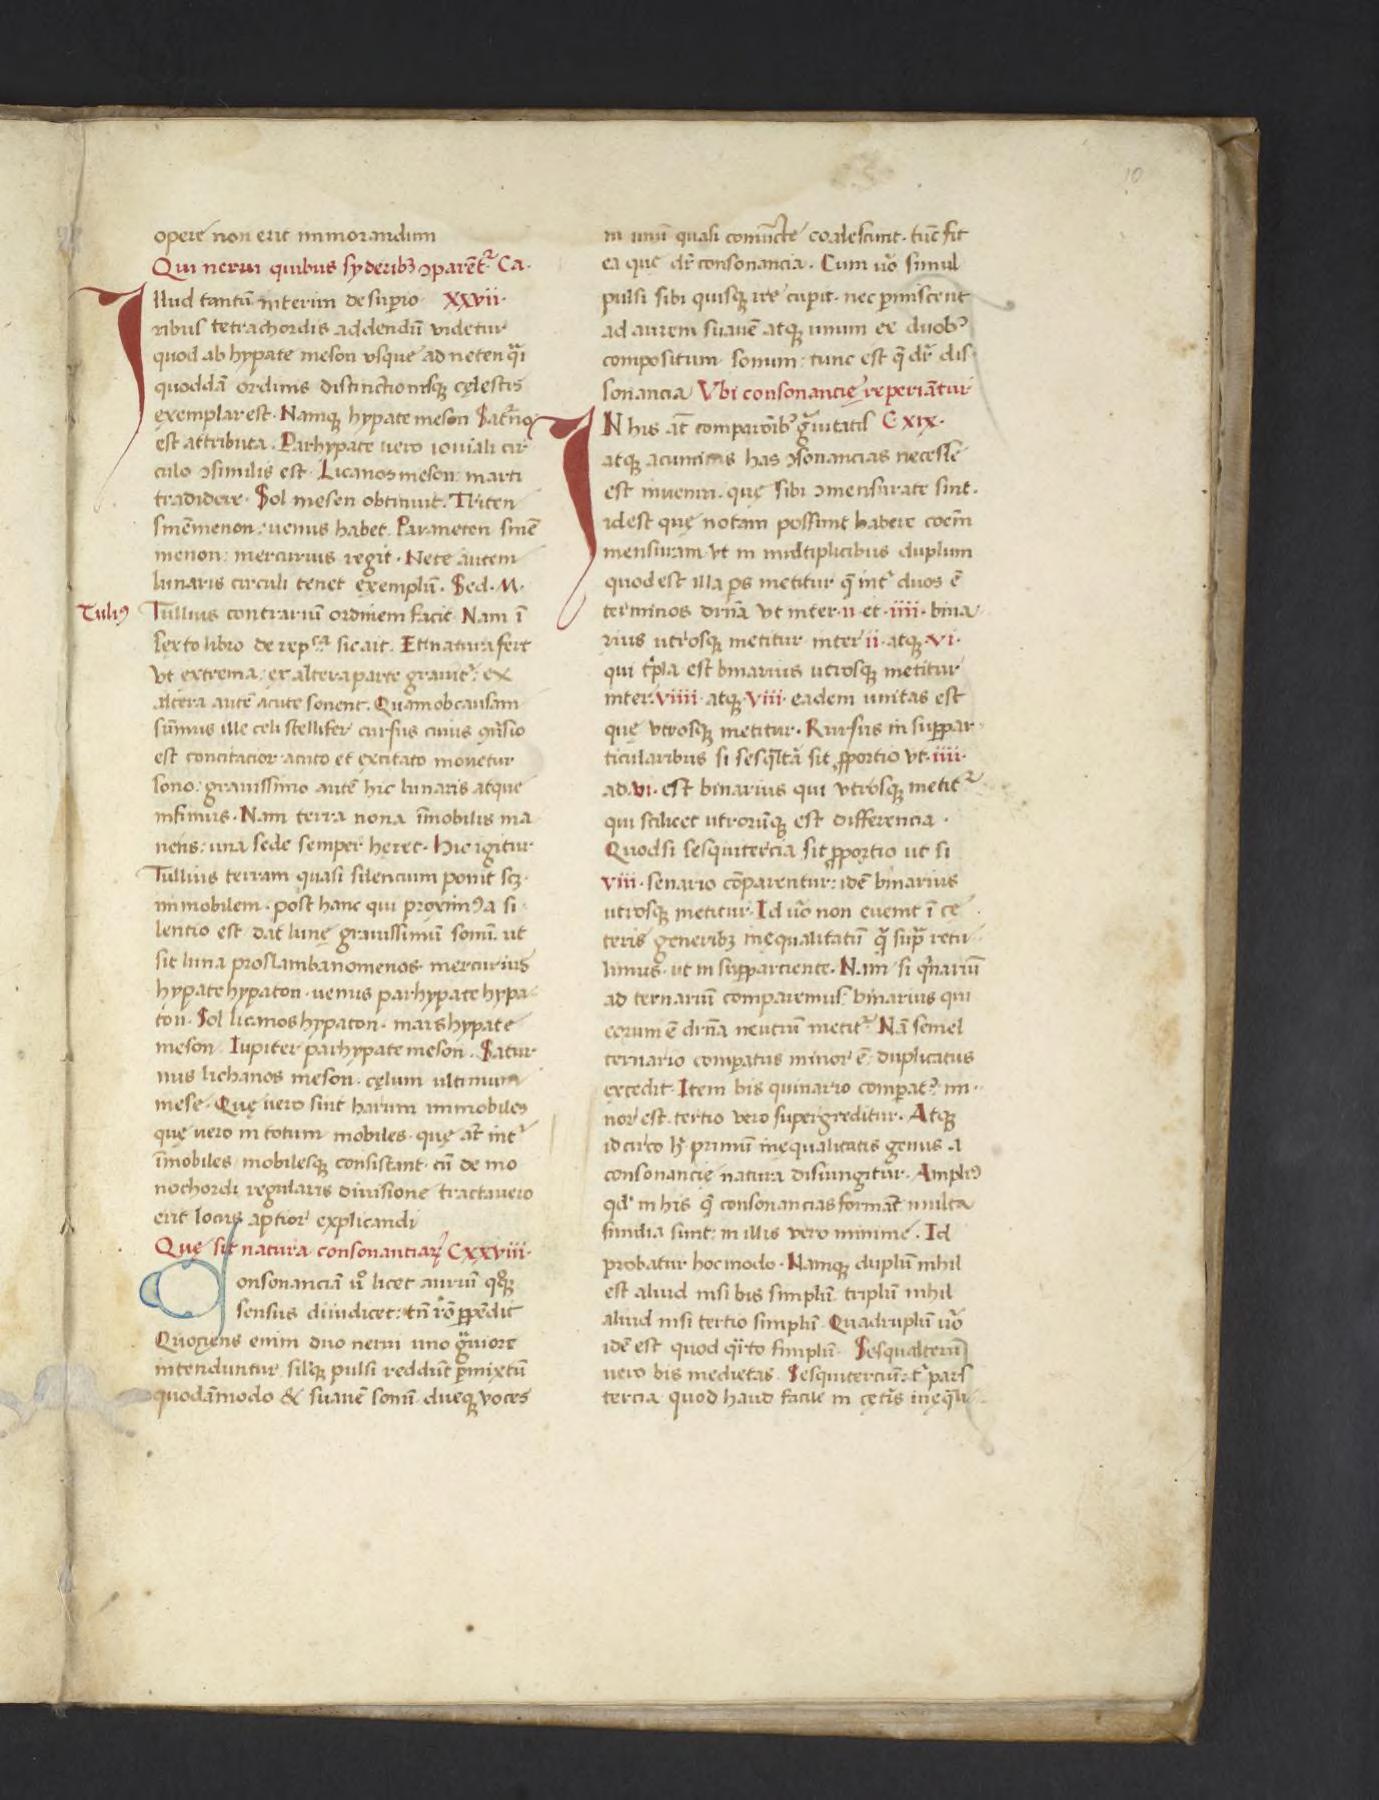 10
opere non erit immorandum
Qui nerui quibus syderibꝫ ↄparēt᷑ Ca.
Illud tantū interim de supĩo xxvii.
ribus tetrachordis addendū videtur
quod ab hypate meson vsque ad neten q̃i
quoddā ordinis distinctionisqꝫ cęlestis
exemplar est. Namqꝫ hypate meson Sat̃no
est attributa. Parhypate uero iouiali cir
culo ↄsimilis est. Licanos meson: marti
tradidere. Sol mesen obtinuit. Triten
sinēmenon: uenus habet. Paraneten sinē
menon: mercurius regit. Nete autem
lunaris circuli tenet exemplū. Sed. M.
Tuliꝰ
Tullius contrariū ordinem facit. Nam ī
sexto libro de rep.ca sic ait. Et natura fert
vt extrema: ex altera parte grauit᷑: ex
altera autē acute sonent. Quam ob causam
sūmus ille celi stellifer cursus cuius ↄũsio
est concitatior acuto et excitato mouetur
sono: grauissimo autē hic lunaris atque
infimus. Nam terra nona īmobilis ma
nens: una sede semper heret. Hic igitur
Tullius terram quasi silencium ponit scꝫ.
immobilem. post hanc qui proximꝰ a si
lentio est dat lunę grauissimū sonū. ut
sit luna proslambanomenos. mercurius
hypate hypaton. uenus parhypate hypa
ton. Sol licanos hypaton. mars hypate
meson. Iupiter parhypate meson. Satur
nus lichanos meson. cęlum ultimum
mese. Quę uero sint harum immobiles
quę uero in totum mobiles. quę at̄ int᷑
īmobiles mobilesqꝫ consistant. cū de mo
nochordi regularis diuisione tractauero
erit locus aptior explicandi
Quę sit natura consonantiaꝝ C xxviii.
Consonanciā ů licet auriū qͦqꝫ
sensus diiudicet: tn̄ rō ꝑpēdit
Quoçiens enim duo nerui uno g̃uiore
intenduntur silꝰqꝫ pulsi reddūt ꝑmixtū
quodāmodo & suauē sonū. dueqꝫ voces
in unū quasi coniūcte coalescunt. tūc fit
ea que dr̄ consonancia. Cum ůo simul
pulsi sibi quisqꝫ ire cupit. nec ꝑmiscent
ad aurem suauē atqꝫ unum ex duobꝰ
compositum sonum: tunc est q̄ dr̄ dis
sonancia Vbi consonancię reperiātur
IN his at̄ comparōibꝰ g̃uitatis C xix.
atqꝫ acuminis has ↄsonancias necesse
est inueniri. quę sibi ↄmensurate sint.
idest quę notam possint habere coēm
mensuram vt in multiplicibus duplum
quod est illa ꝑs metitur q̄ int᷑ duos ē
terminos drn̄a vt inter. ii. et. iiii. bina
rius utrosqꝫ metitur. inter ii. atqꝫ vi.
qui tͥpla est binarius utrosqꝫ metitur
inter. viiii. atqꝫ. viii. eadem unitas est
quę vtrosqꝫ metitur. Rursus in suꝑpar
ticularibus si sesq̃ltā sit ꝓportio vt. iiii.
ad. vi. est binarius qui vtrosqꝫ metit᷑
qui scilicet utrorūqꝫ est differencia.
Quod si sesquitercia sit ꝓportio ut si
viii. senario cōparentur: idē binarius
utrosqꝫ metitur. Id ůo non euenit ī cę
teris generibꝫ inequalitatū q̃ sup̃ retu
limus. ut in suꝑparciente. Nam si q̃nariū
ad ternariū comparemus: binarius qui
eorum ē drn̄a neutrū metit᷑ Nā semel
ternario comparatus minor ē: duplicatus
excedit. Item bis quinario comparatꝰ. mi
nor est. tertio vero supergreditur. Atqꝫ
idcirco hͦ primū inequalitatis genus a
consonancię natura disiungitur. Ampliꝰ
qd̕ in his q̄ consonancias formāt multa
similia sunt: in illis vero minime. Id
probatur hoc modo. Namqꝫ duplū nihil
est aliud nisi bis simplū. triplū nihil
aliud nisi tertio simplū. Quadruplū ůo
idē est quod q̃rto simplū. Sesqualterū
uero bis medietas. Sesquiterciū: tͥ pars
tercia quod haud facile in cęt̃is ineq̃li